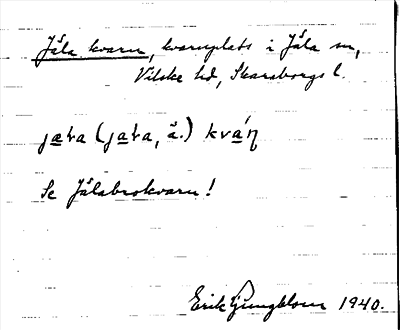 Jäla kvarn, kvarnplats i Jäla sn,
Vilske hd, Skaraborgs l.
(ä.)
Se Jälabrokvarn!
Erik Ljungblom 1940.